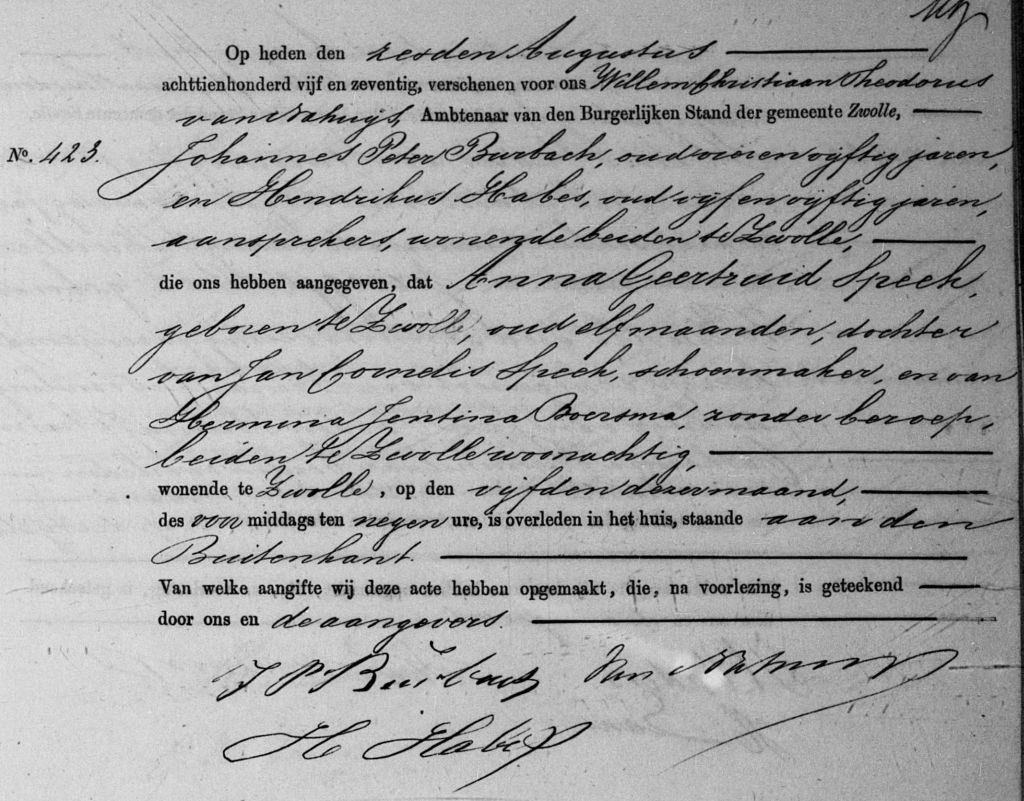 Op heden den zesden Augustus
achttienhonderd vijf en zeventig, verschenen voor ons Willem Christiaan Theodorus
van Nahuys, Ambtenaar van den Burgerlijken Stand der gemeente Zwolle,
No. 423. Johannes Peter Burbach, oud vier en vyftig jaren,
en Hendrikus Habes, oud vyf en vyftig jaren,
aansprekers, wonende beiden te Zwolle,
die ons hebben aangegeven, dat Anna Geertruid Speek,
geboren te Zwolle, oud elf maanden, dochter
van Jan Cornelis Speek, schoenmaker, en van
Hermina Jentina Boersma, zonder beroep,
beiden te Zwolle woonachtig,
wonende te Zwolle, op den vyfden dezer maand,
des voor middags ten negen ure, is overleden in het huis, staande aan den
Buitenkant.
Van welke aangifte wij deze acte hebben opgemaakt, die, na voorlezing, is geteekend
door ons en de aangevers.
J P Burbach Van Nahuys
H Habes